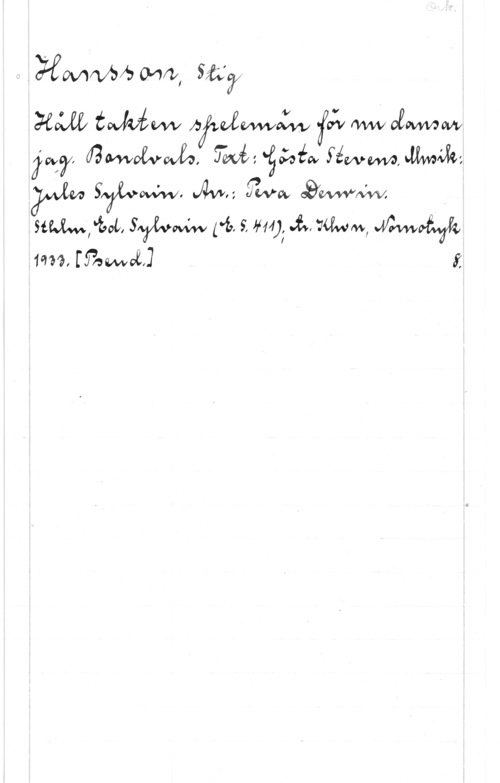 Ork.
Hansson, Stig
Håll takten spelemän för nu dansar
jag. Bondvals. Text: Gösta Stevens. Musik:
Jules Sylvain. Arr.: Pera Derwin.
Sthlm, Ed. Sylvain (E. S. 411); tr. Khvn, Nornotryk
1933. [Pseud.] 8.